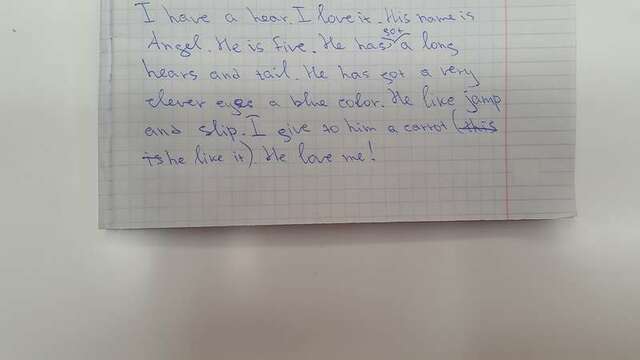 I have a hear. I love it. His name is
Angel. He is five. He has got a long
hears and tail. He has got a very
clever eyes a blue color. He like jamp
and slip. I give to him a carrot (this
is he like it) He love me!